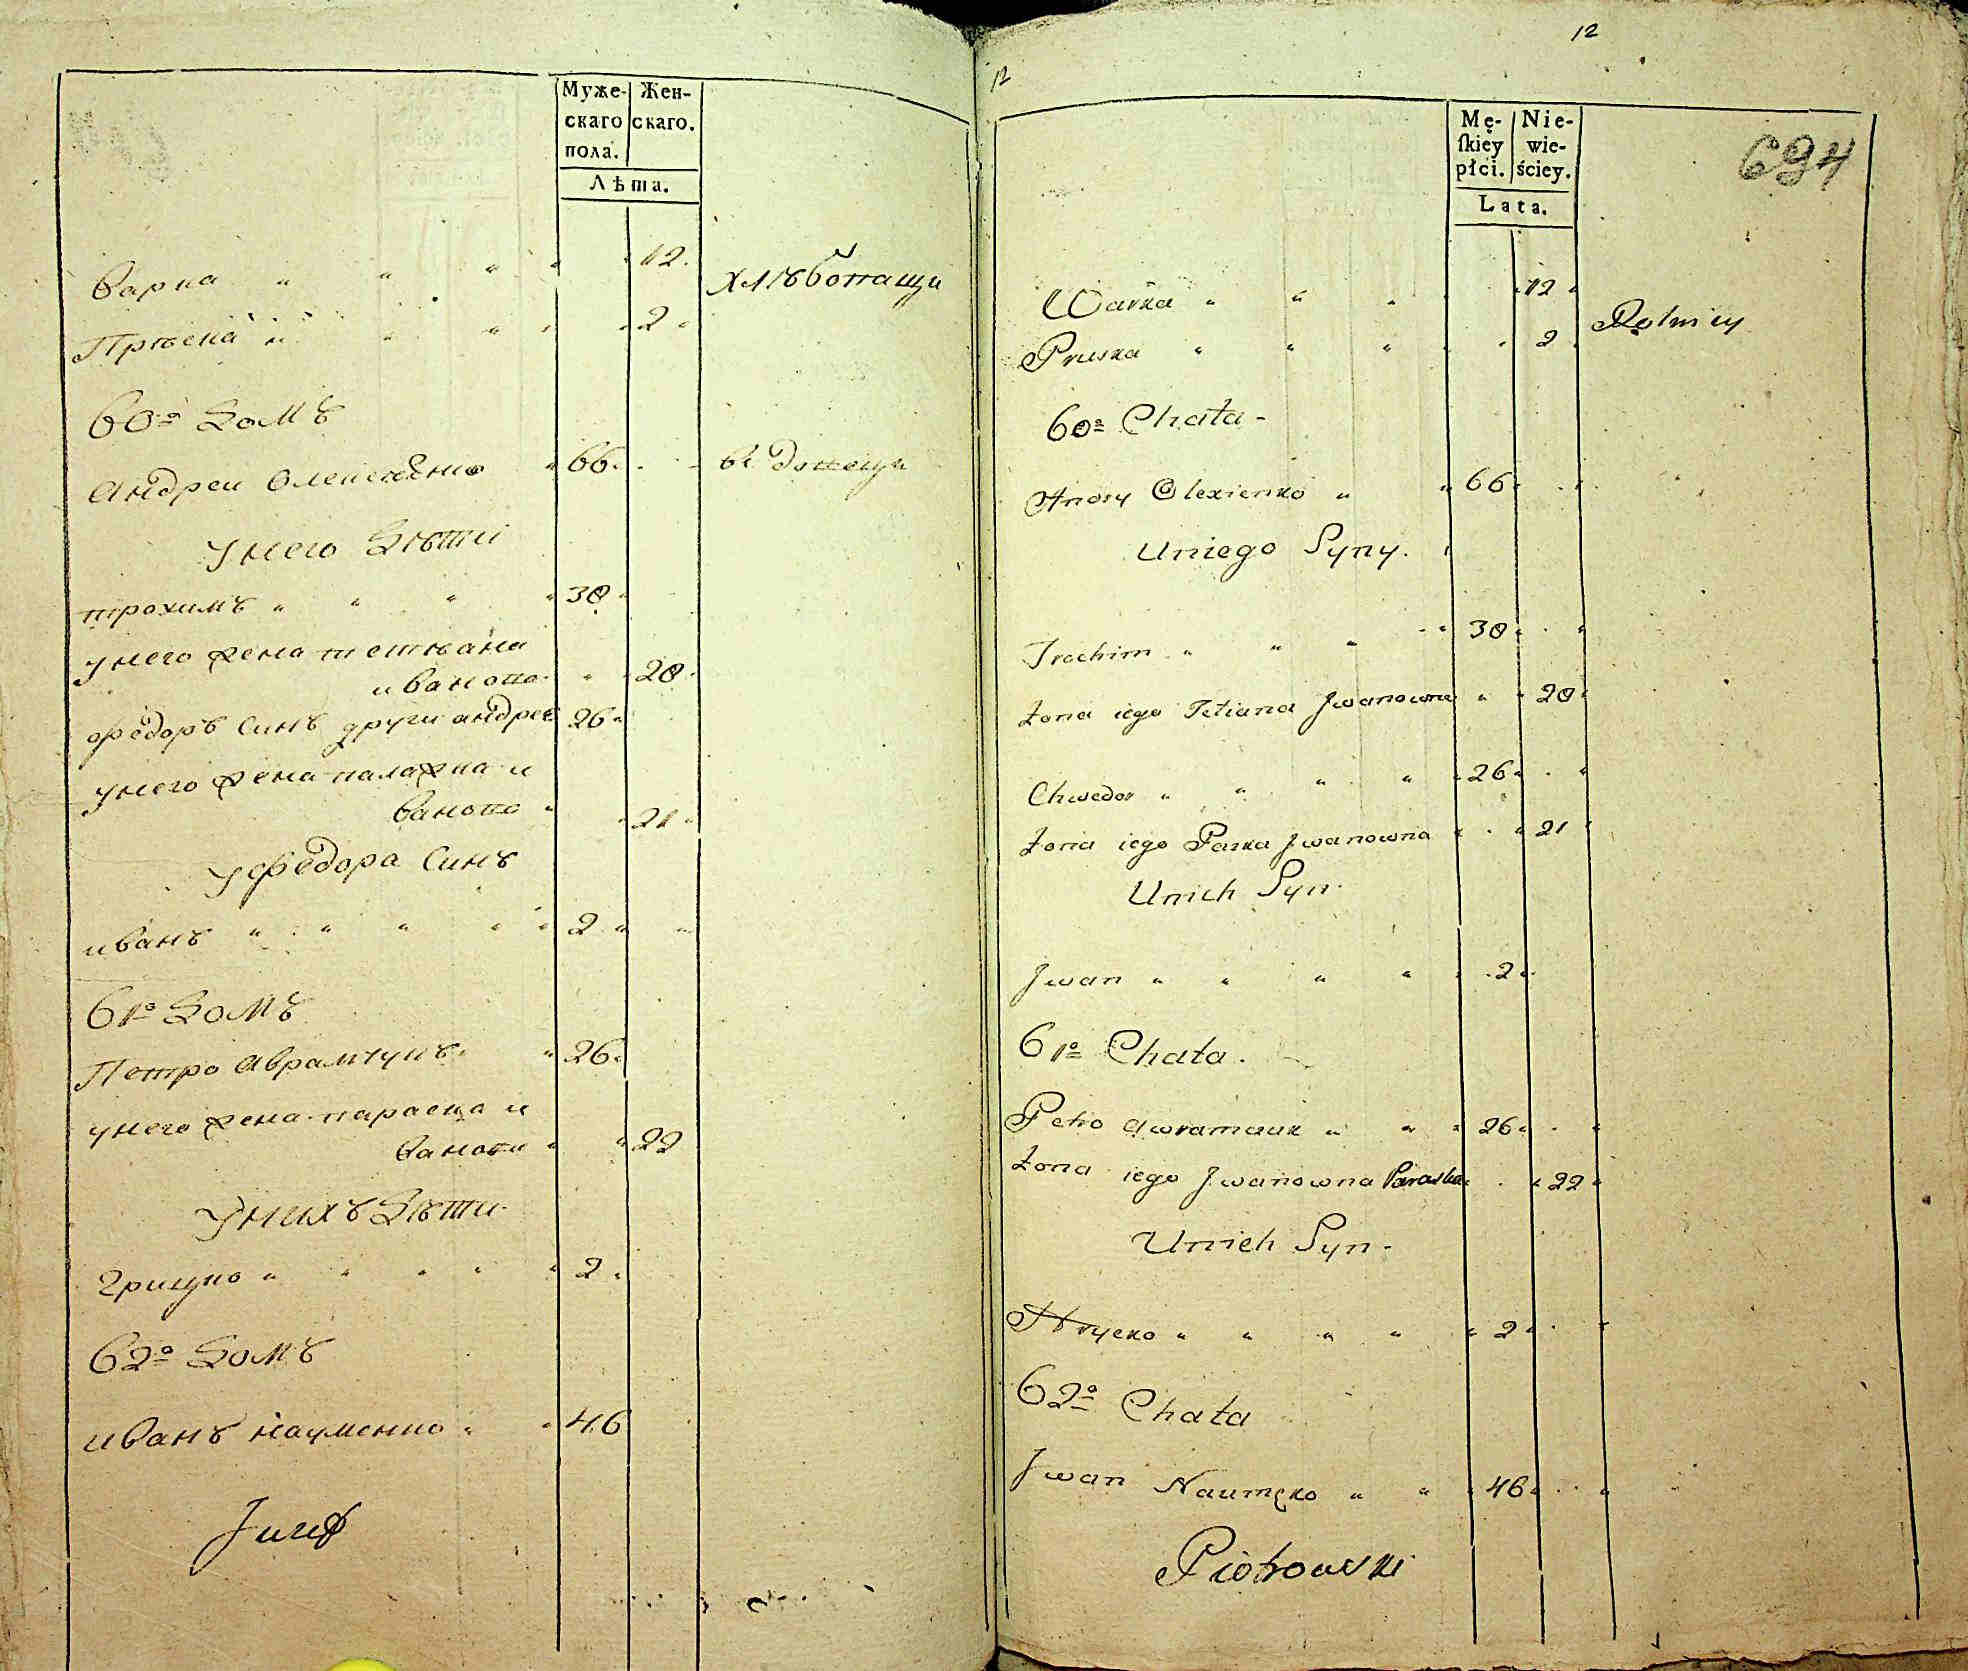 Муже-
скаго
пола.
Жен-
скаго.
Лѣта.
Варка " " " " 12.
хлѣбопащи
Прѣска " " " " 2 "
60º Домъ
Андреи Олексѣенко " 66 "
унего Дѣти
трохимъ " " " " 30 "
унего жена тетѣана
ивановна " " 20 "
Федоръ Синъ други андрее 26 "
унего жена палажка и
вановна " " 21 "
уФедора Синъ
иванъ " " " " " 2 " "
61º Домъ
Петро Аврамчукъ " 26 "
унего жена параска и
вановна " " 22
унихъ Дѣти
Грицко " " " " " 2 "
62º Домъ
иванъ науменко " " 46
Jozef
12
12
694
Mę-
ſkiey
płci.
Nie-
wie-
ściey.
Lata.
Warka " " " 12 "
Rolnicy
Pruska " " " " 2
60º Chata -
Andry Olexienko " " 66 "
Uniego Syny.
Trochim " " " " 30 "
Zona iego Tetiana Jwanowna " " 20 "
Chwedor " " " " 26 "
Zona iego Parka Jwanowna " " 21 "
Unich Syn.
Jwan " " " " 2 "
61º Chata.
Petro Awramczuk " " " 26 "
Zona iego Jwanowna Paraska " 22 "
Unich Syn.
Hrycko " " " " " 2 "
62º Chata
Jwan Naumęko " " " 46 "
Piotrowski